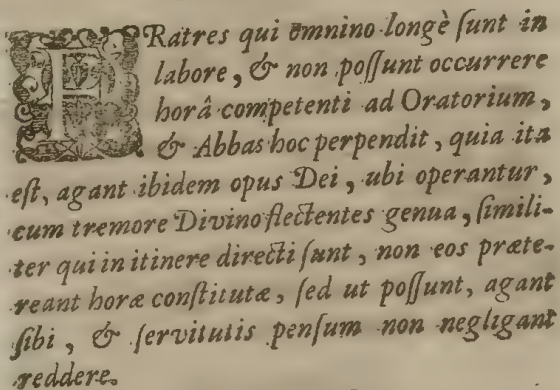 FRatres qui omnino longè ſunt in
labore, & non poſſunt occurrere
horâ competenti ad Oratorium,
& Abbas hoc perpendit, quia ita
eſt, agant ibidem opus Dei, ubi operantur,
cum tremore Divino flectentes genua, ſimili-
ter qui in itinere directi ſunt, non eos præte-
reant horæ conſtitutæ, ſed ut poſſunt, agant
ſibi, & ſervitutis penſum non negligant
reddere.